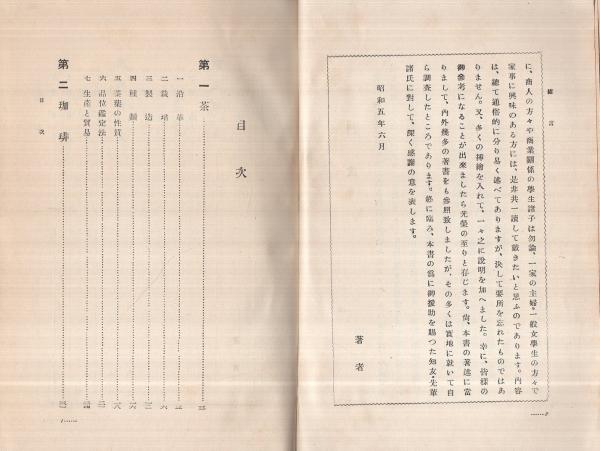 緒言
に、商人の方々や商業關係の學生諸子は勿論、一家の主婦・一般女學生の方々で
家事に興味のある方には、是非共一讀して戴きたいと思ふのであります。内容
は、總て通俗的に分り易く述べてありますが、決して要所を忘れたものではあ
りません。又、多くの挿繪を入れて、一々之に説明を加へました。幸に、皆樣の
御參考になることが出來ましたら光榮の至りと存じます。尙、本書の著述に當
りまして、内外幾多の著書をも參照致しましたが、その多くは實地に就いて自
ら調査したところであります。終に臨み、本書の爲に御援助を賜つた知友・先輩
諸氏に對して、深く感謝の意を表します。
昭和五年六月
著者
目次
第一 茶
一 沿革
二 栽培
三 製造
四 種類
五 茶葉の性質
六 品位鑑定法
七 生産と貿易
第二 珈琲
目次